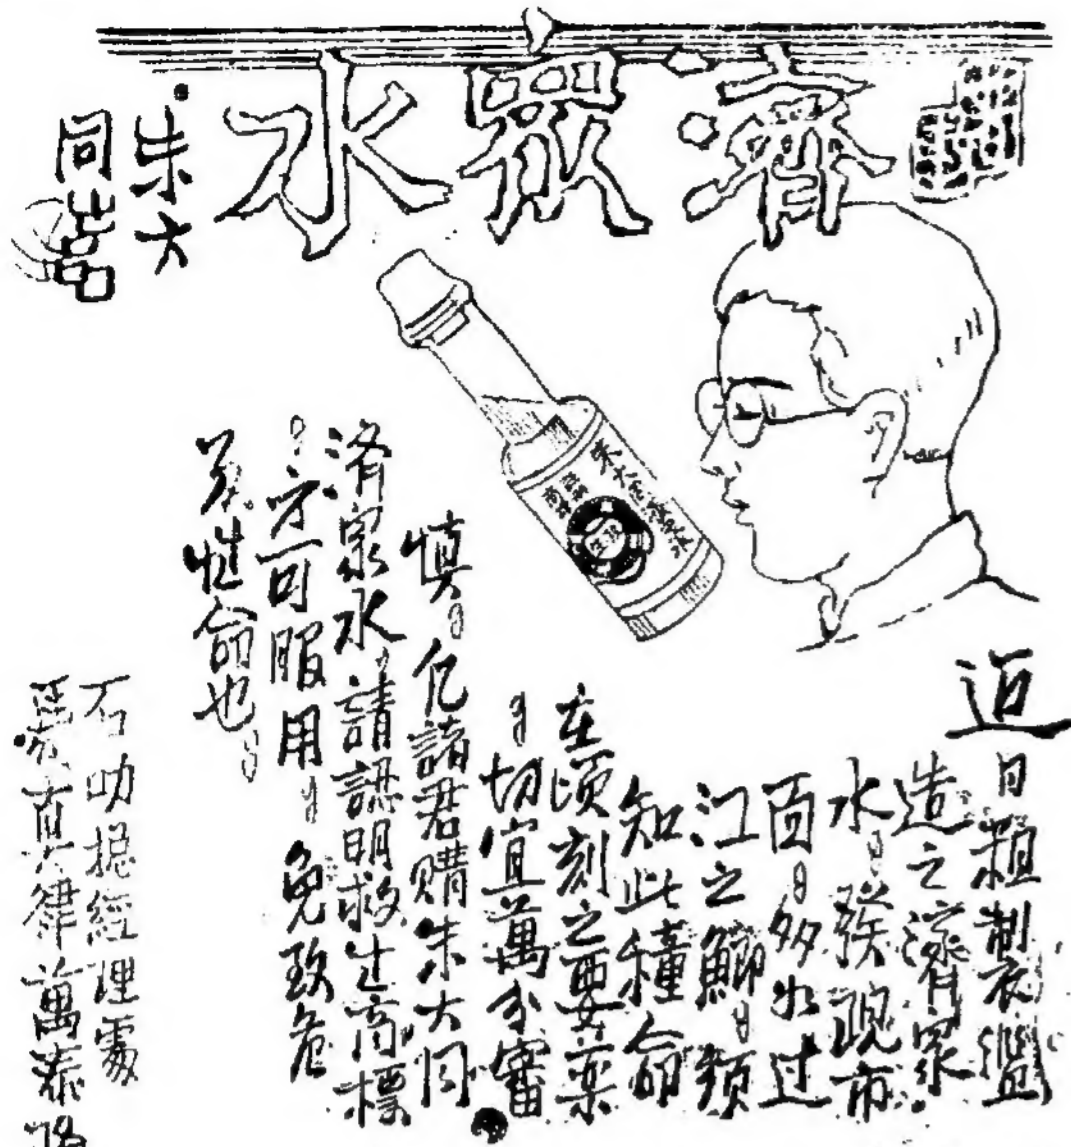 濟眾水
朱大
同
近日粗製濫
造之濟眾
水，發現市
面，多如过
江之鯽，須
知此種命
在頃刻之要藥
，切宜萬分審
慎，凡諸君購朱大同
濟眾水，請認明救生商標
，才可服用，免致危
及性命也，
石叻総經理處
律萬泰
朱大同濟眾水